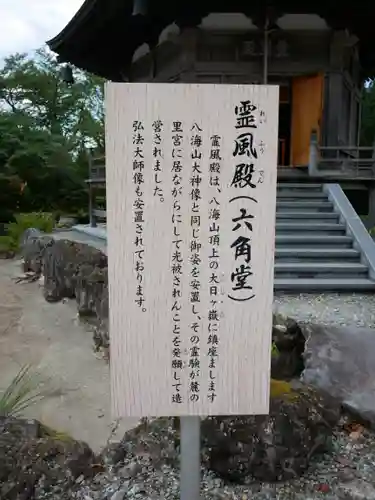 霊風殿（六角堂）
れい ふう でん
霊風殿は、八海山頂大日ヶ嶽に鎮座まします
八海山大神像と同じ御像を安置し、その霊験が麓の
里宮に居ながらにして光被されんことを発願して造
営されました。
弘法大師像も安置されております。